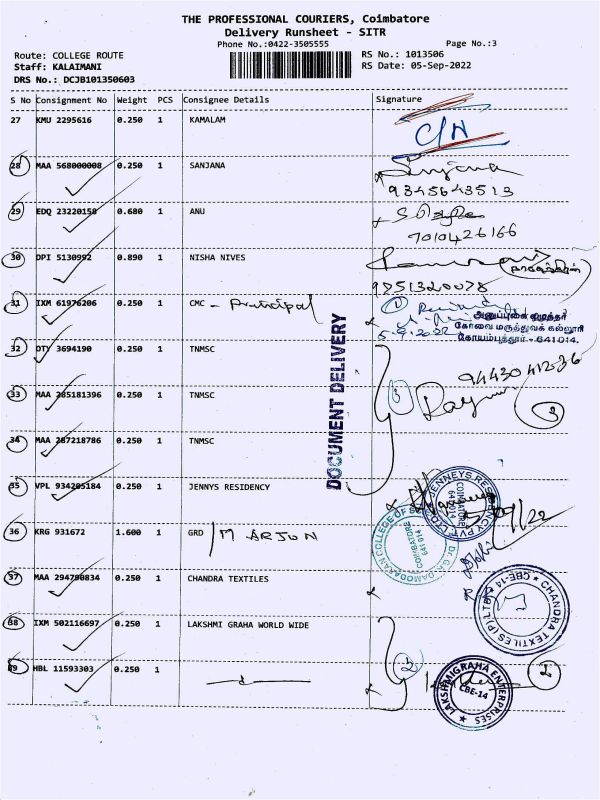 THE PROFESSIONAL COURIERS, Coimbatore
Delivery Runsheet - SITR
Phone No.:0422-3505555
Page No.:3
Route: COLLEGE ROUTE
RS No.: 1013506
Staff: KALAIMANI
RS Date: 05-Sep-2022
DRS No.: DCJB101350603
S No Consignment No Weight PCS Consignee Details Signature
27 KMU 2295616 0.250 1 KAMALAM
C/H
28 MAA 568000008 0.250 1 SANJANA
Sanjana
9345643513
29 EDQ 23220158 0.680 1 ANU
7010426166
30 DPI 5130992 0.890 1 NISHA NIVES
9751320078
31 IXM 61976206 0.250 1 CMC - Principal
1
5.9.2022
அனுப்புகை எழுத்தர்
கோவை மருத்துவக் கல்லூரி
கோயம்புத்தூர் - 641 014.
32 DTY 3694190 0.250 1 TNMSC
DOCUMENT DELIVERY
33 MAA 285181396 0.250 1 TNMSC
3
3
34 MAA 287218786 0.250 1 TNMSC
35 VPL 934205184 0.250 1 JENNYS RESIDENCY
JENNEYS RESIDENCY PVT.
COIMBATORE
641 014
36 KRG 931672 1.600 1 GRD / M ARJUN
Dr. G.R. DAMODARAN COLLEGE OF
COIMBATORE
641 014
37 MAA 294790834 0.250 1 CHANDRA TEXTILES
CHANDRA TEXTILES (P) LTD
CBE-14
38 IXM 502116697 0.250 1 LAKSHMI GRAHA WORLD WIDE
2
39 HBL 11593303 0.250 1
2
LAKSHMIGRAHA ENTERPRISES
CBE-14